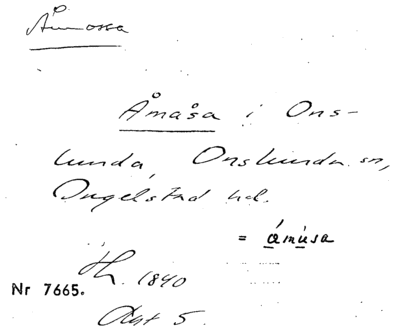 Åmossa
Åmåsa i Ons-
lunda, Onslunda sn,
Ingelstad hd.
= ámúsa
1840
Nr 7665.
Akt 5.